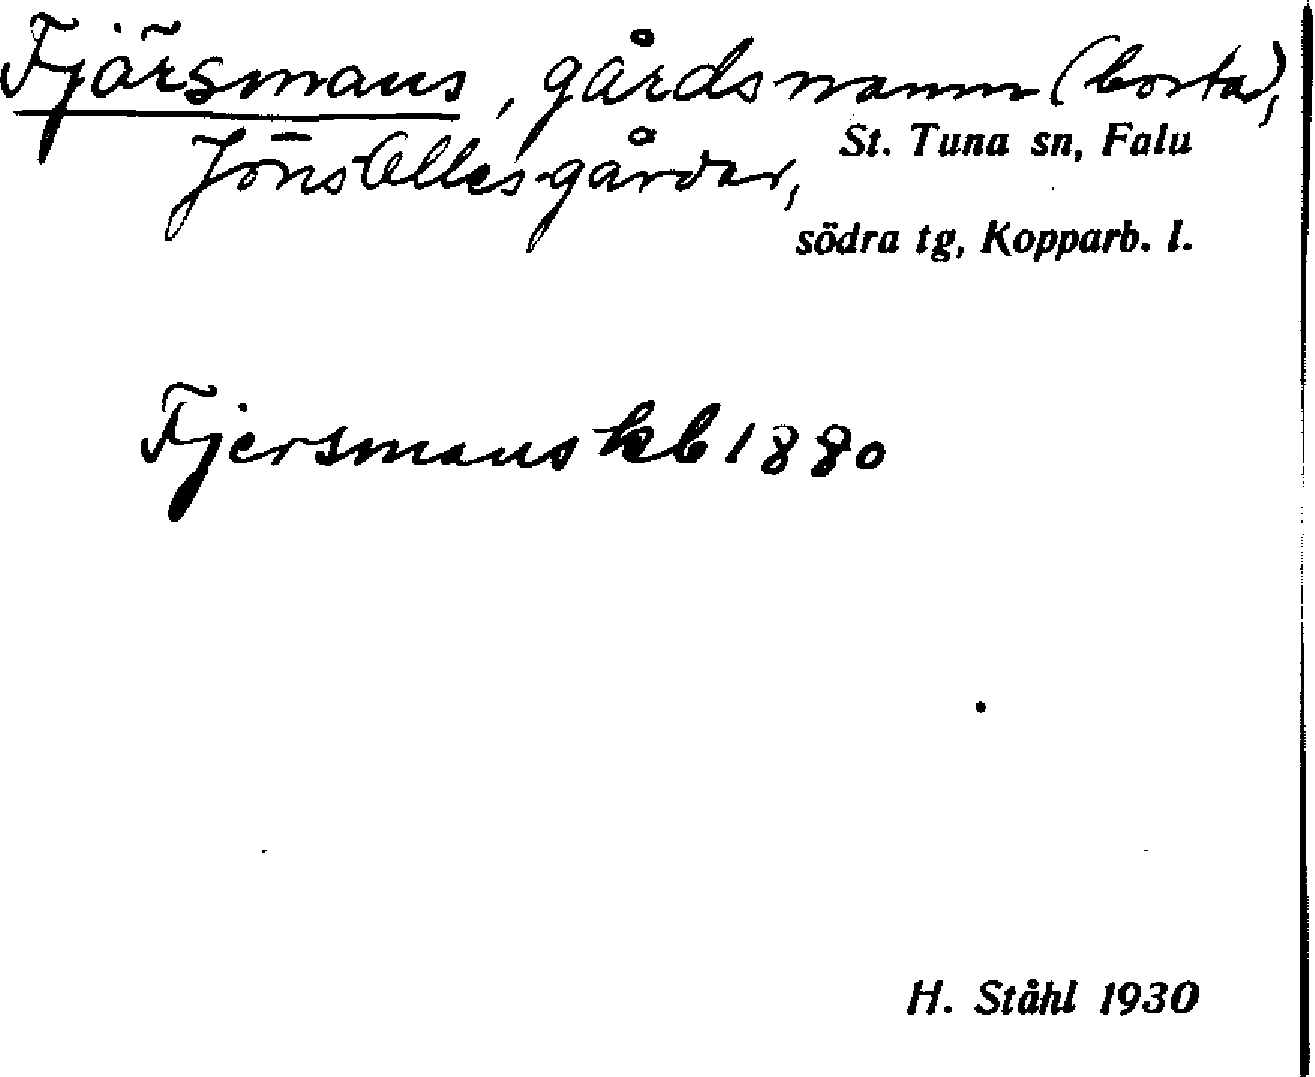 Fjärsmans, gårdsnamn (borta),
Jöns Ollesgårdar,
St. Tuna sn, Falu
södra tg, Kopparb. l.
Fjersmans kb 1880
H. Ståhl 1930